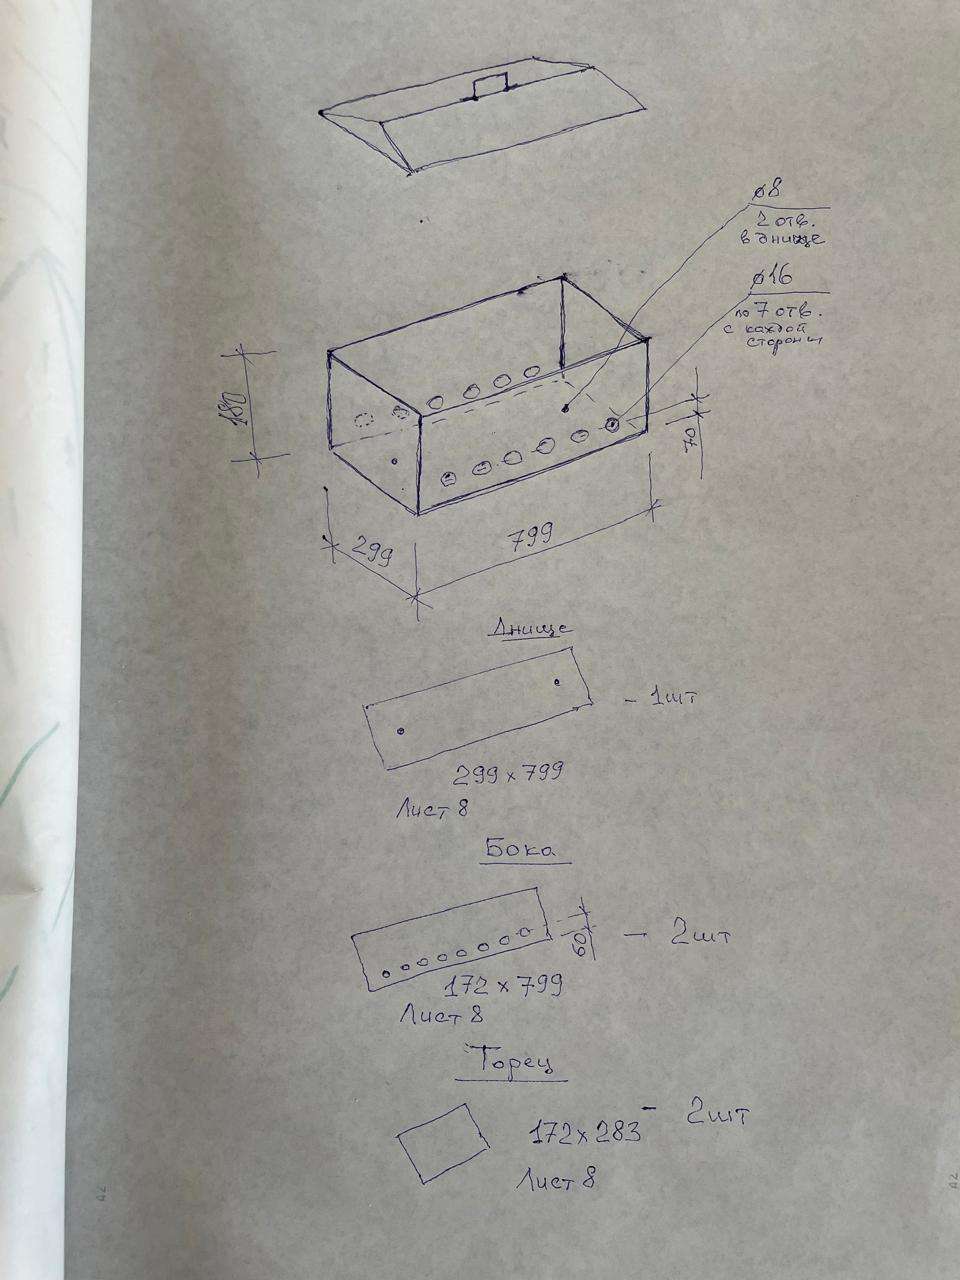 ø8
2 отв.
в днище
ø16
по 7 отв.
с каждой
стороны
180
70
299
799
Днище
- 1шт
299 x 799
Лист 8
Бока
60
- 2шт
172 x 799
Лист 8
Торец
172 x 283 - 2шт
Лист 8
A2
A2